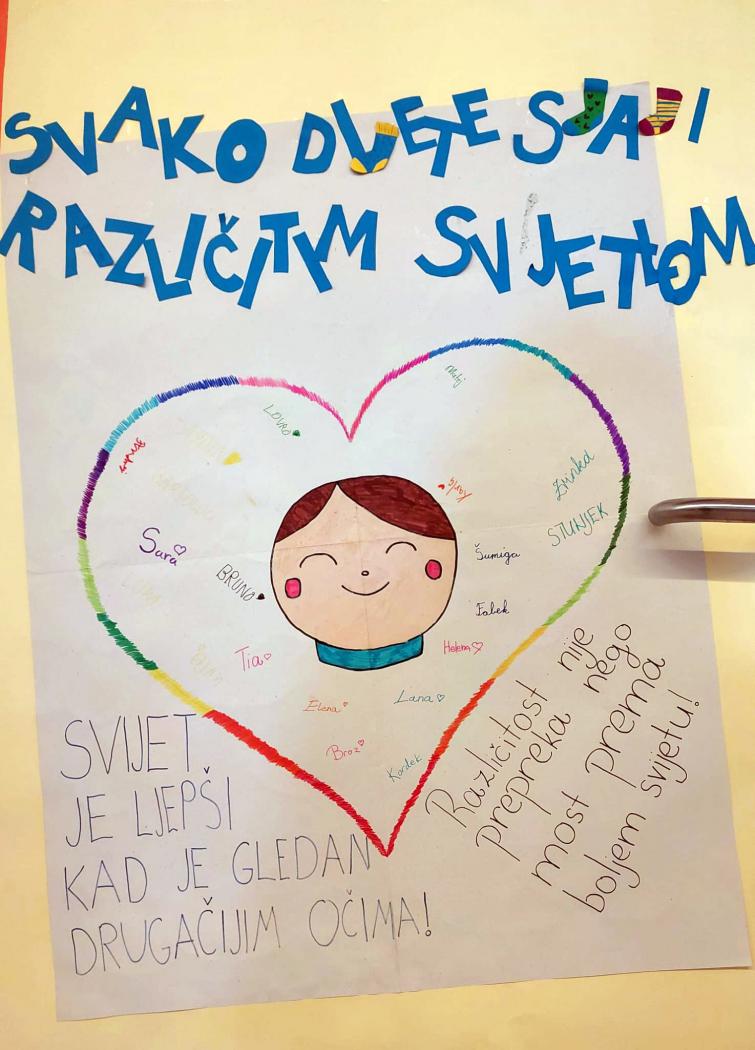 SVAKO DIJETE SJAJI
RAZLIČITIM SVIJETLOM
Matej
LOVRO
Karlo
Zrinka
STUNJEK
Sara
BRUNO
Šumiga
Fabek
Tia
Helena
Elena
Lana
Broz
Kordek
SVIJET
JE LJEPŠI
KAD JE GLEDAN
DRUGAČIJIM OČIMA!
Različitost nije
prepreka nego
most prema
boljem svijetu!